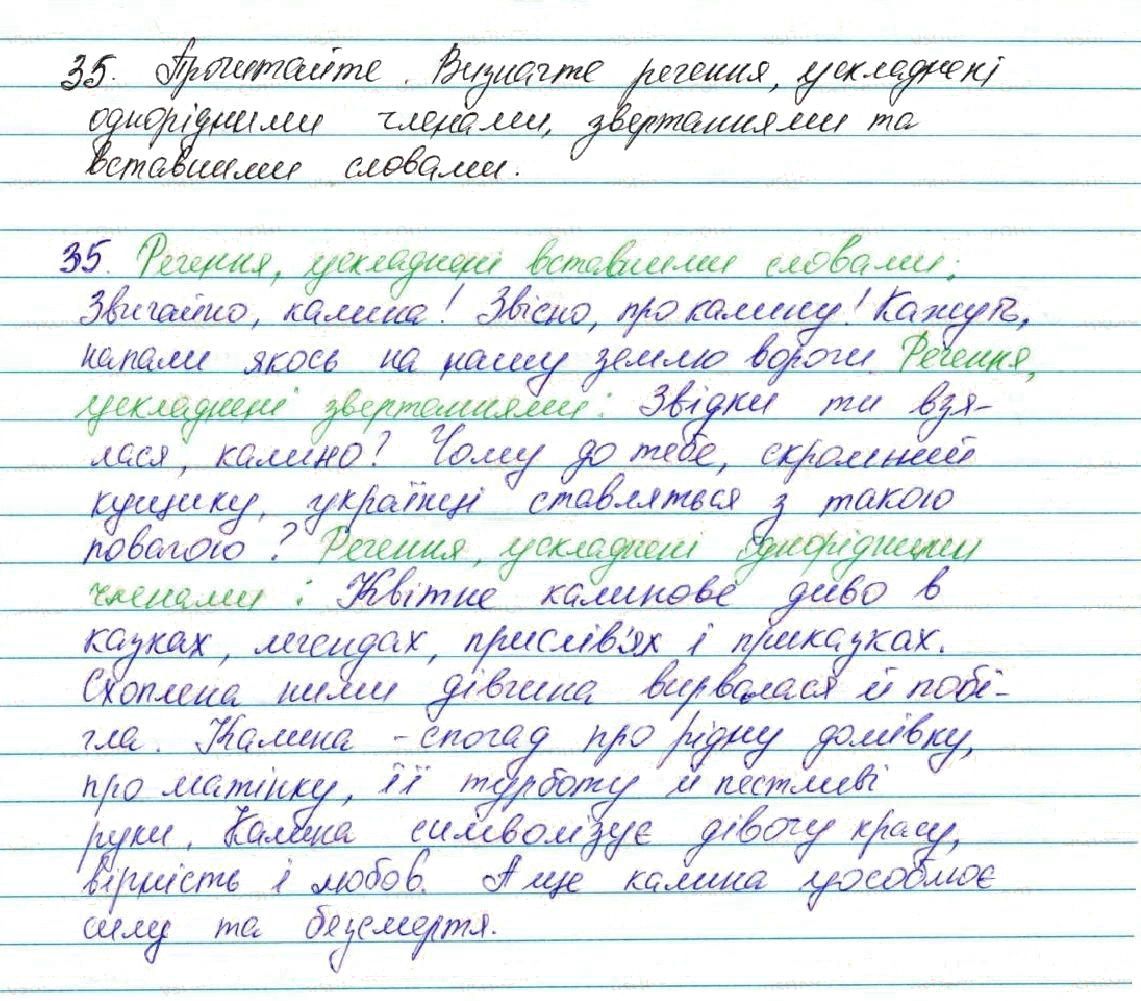 35. Прочитайте. Визначте речення, ускладнені
однорідними членами, звертаннями та
вставними словами.
35. Речення, ускладнені вставними словами:
Звичайно, калина! Звісно, про калину! Кажуть,
напали якось на нашу землю вороги. Речення,
ускладнені звертаннями: Звідки ти взя-
лася, калино? Чому до тебе, скромний
кущику, українці ставляться з такою
повагою? Речення, ускладнені однорідними
членами: Квітне калинове диво в
казках, легендах, прислів'ях і приказках.
Схоплена ними дівчина вирвалася й побі-
гла. Калина - спогад про рідну домівку,
про матінку, її турботу й пестливі
руки. Калина символізує дівочу красу,
вірність і любов. А ще калина уособлює
силу та безсмертя.